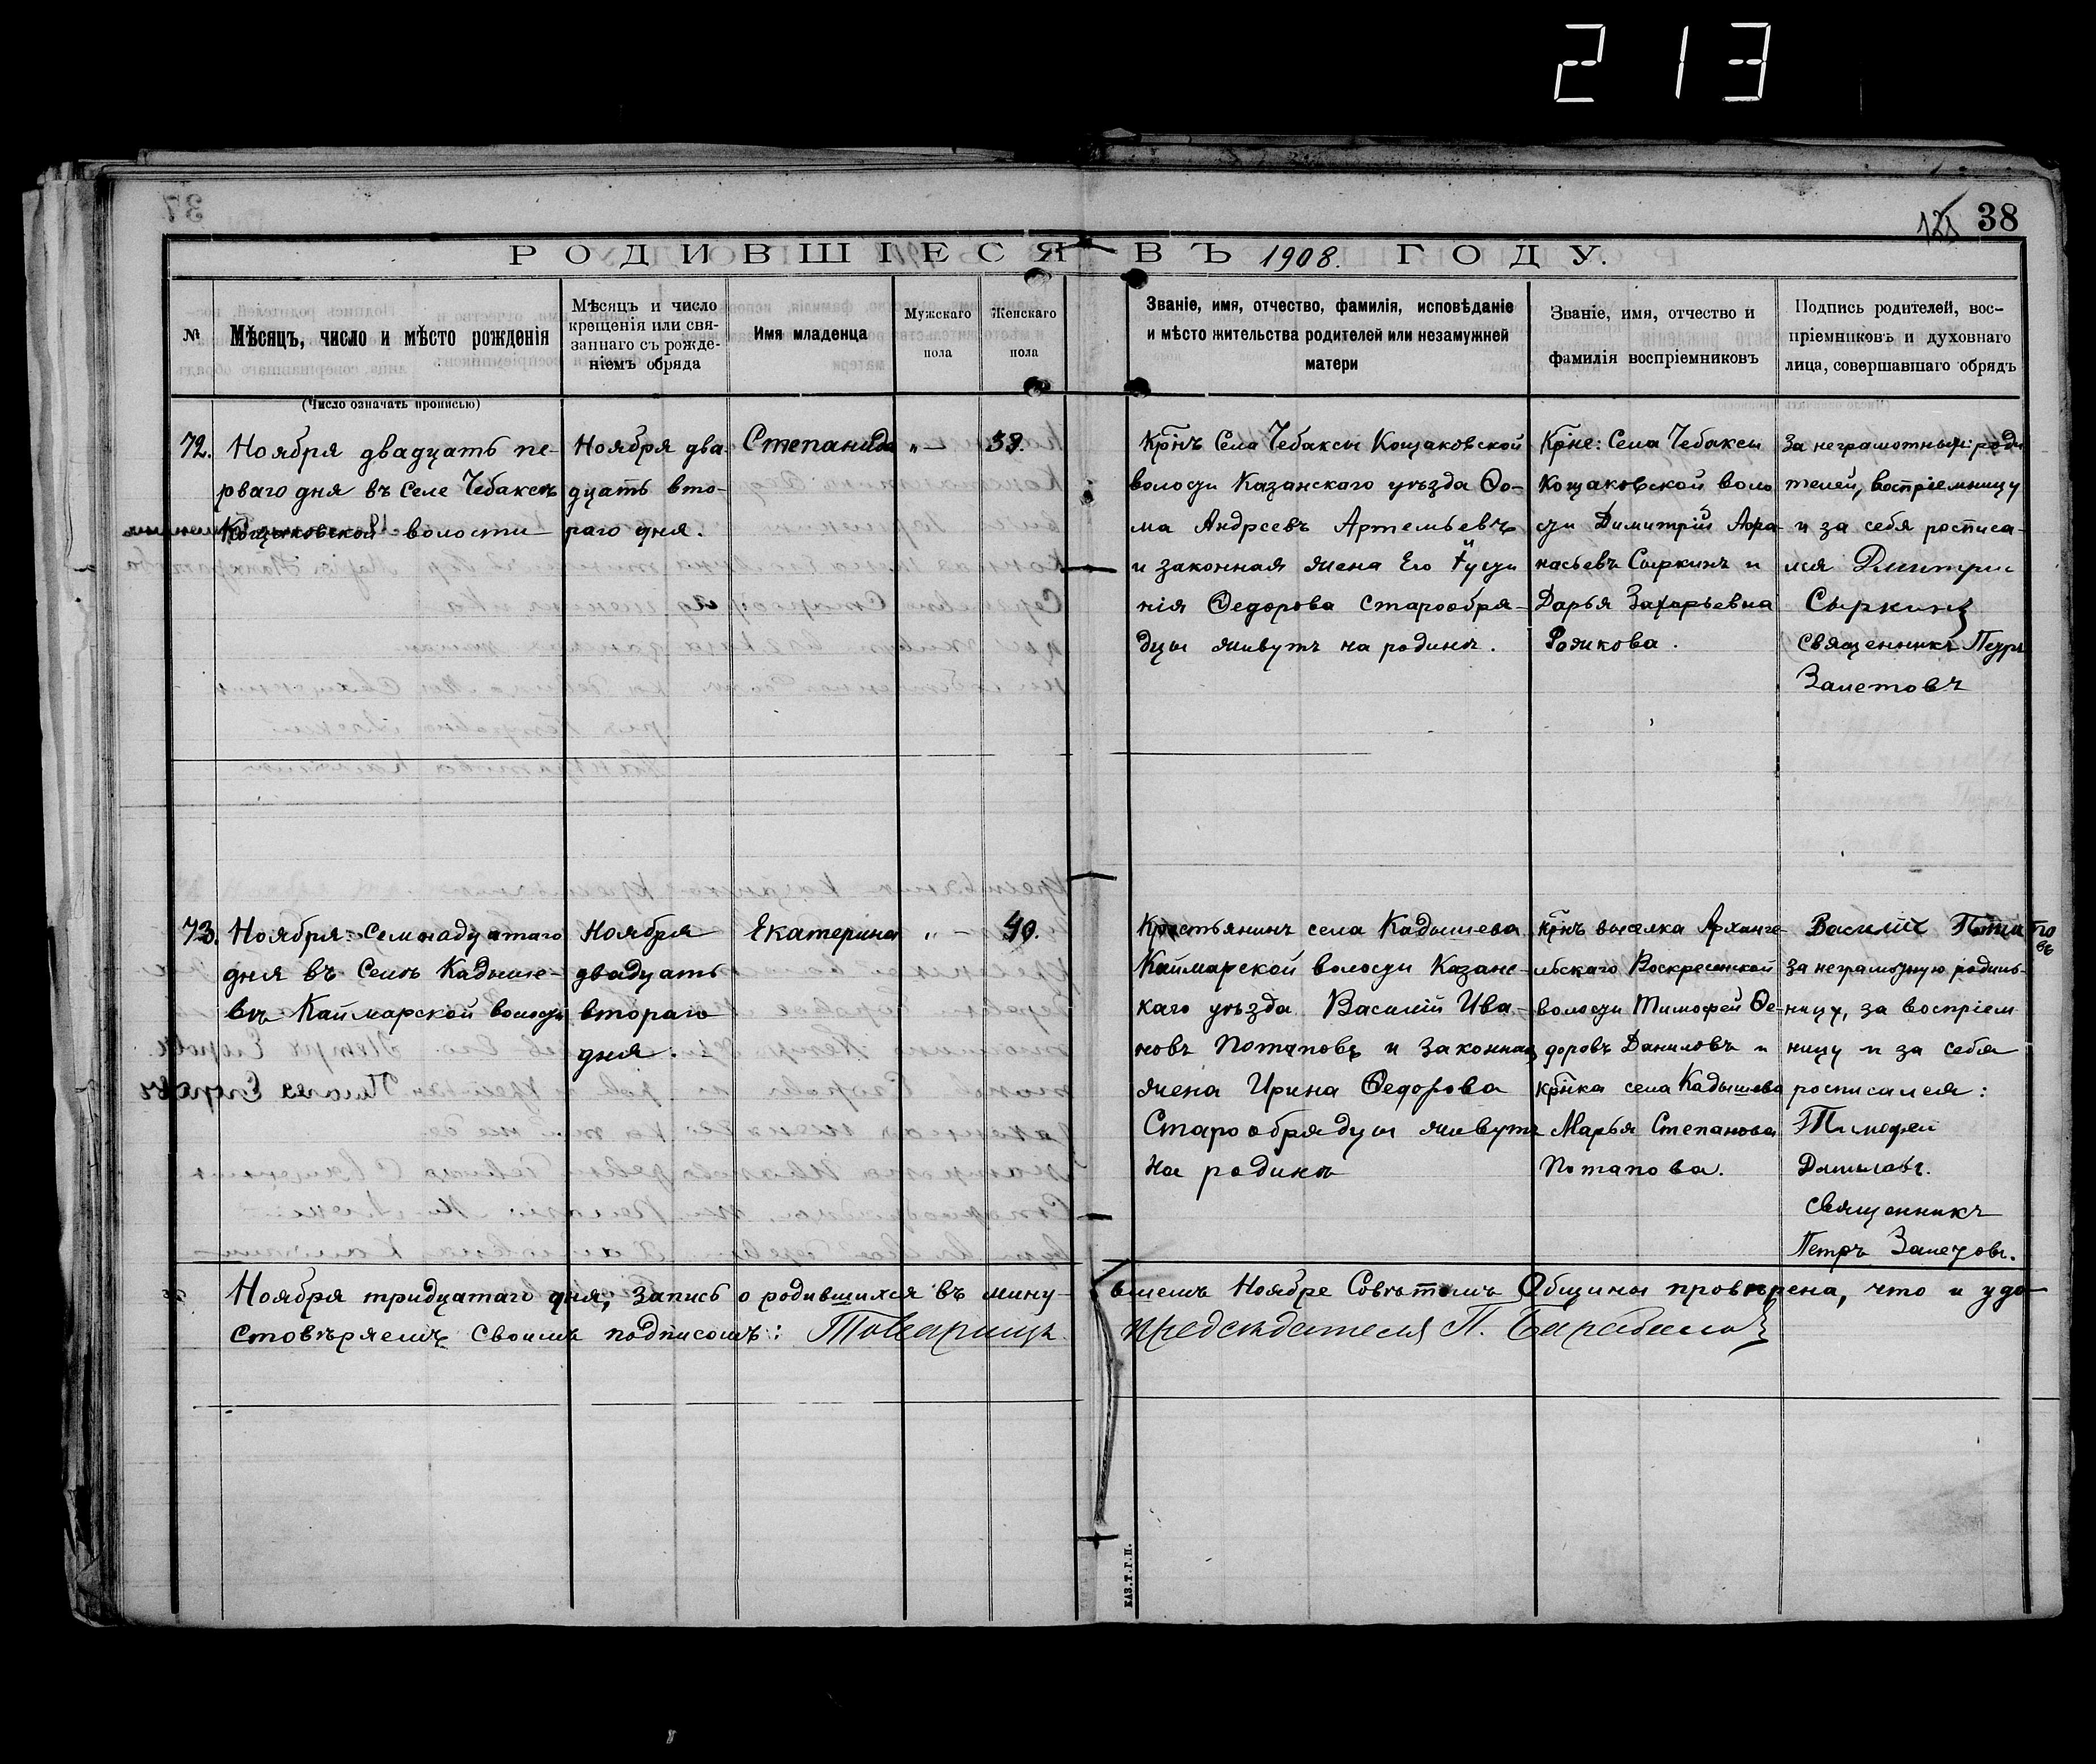 213
38
РОДИВШІЕСЯ ВЪ 1908. ГОДУ.
№
Мѣсяцъ, число и мѣсто рожденія
(Число означать прописью)
Мѣсяцъ и число
крещенія или свя-
заннаго съ рожде-
ніемъ обряда
Имя младенца
Мужскаго
пола
Женскаго
пола
Званіе, имя, отчество, фамилія, исповѣданіе
и мѣсто жительства родителей или незамужней
матери
Званіе, имя, отчество и
фамилія воспріемниковъ
Подпись родителей, вос-
пріемниковъ и духовнаго
лица, совершавшаго обрядъ
72.
Ноября двадцать пе-
рваго дня въ Селе Чебаксъ
Кощаковской волости
Ноября два-
дцать вто-
раго дня.
Степанида
"—
39.
Крнъ Села Чебаксы Кощаковской
волости Казанскаго уѣзда Ѳо-
ма Андреевъ Артемьевъ
и законная жена Его
нія Ѳедорова Старообря-
дцы живутъ на родинѣ.
Крне: Села Чебаксы
Кощаковской воло
сти Димитрій Афа
насьевъ Сыркинъ и
Дарья Захарьевна
Рожкова.
За неграмотныхъ: роди
телей, воспріемницу
и за себя росписа-
лся Дмитрій
Сыркинъ
Священникъ Петръ
Заметовъ
73.
Ноября: Семнадцатаго
дня въ Селѣ Кадыше-
въ Каймарской волости
Ноября
двадцать
втораго
дня.
Екатерина
"—
40.
Крестьянинъ села Кадышева
Каймарской волости Казанс-
каго уѣзда Василій Ива-
новъ Потаповъ и законная
жена Ирина Ѳедорова
Старообрядцы живутъ
на родинѣ
Крнъ выселка Арханге-
льскаго Воскресенской
волости Тимофей Ѳе-
доровъ Даниловъ и
крнка села Кадышева
Марья Степанова
Потапова.
Василій Потаповъ
За неграмотную родиль-
ницу, за воспріем
ницу и за себя
росписался:
Тимофей
Даниловъ.
Священникъ
Петръ Заметовъ.
Ноября тридцатаго дня, запись о родившихся въ мину-вшемъ Ноябре Совѣтомъ Общины провѣрена, что и удо-
стовѣряемъ своимъ подписомъ: Товарищъ предсѣдателя П. Барабановъ
КАЗ.Т.Г.П.